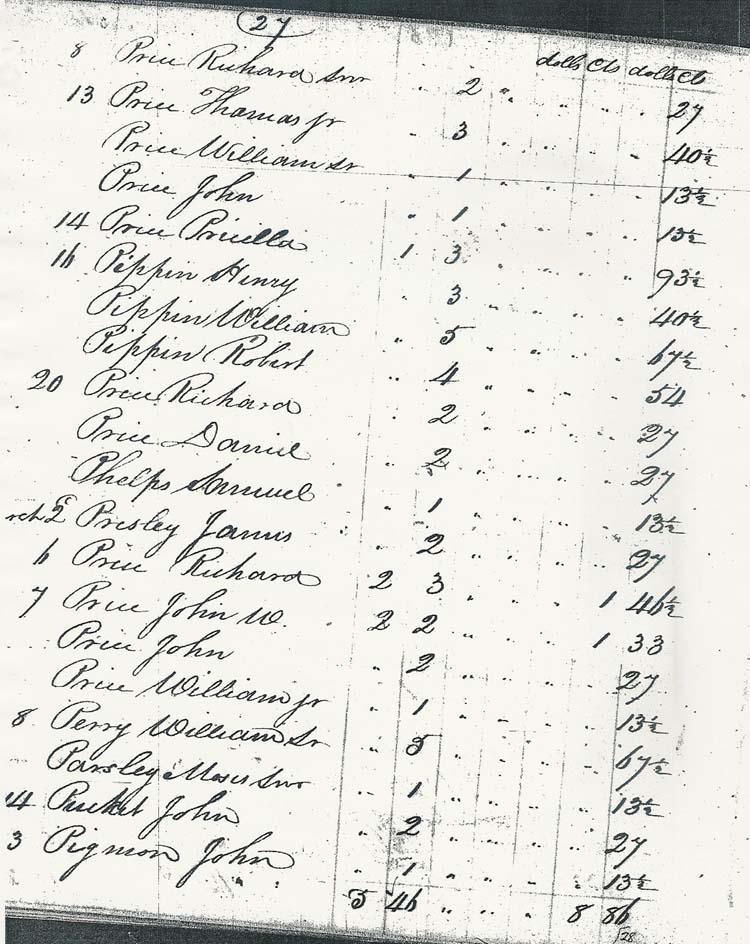 27
dolls cts dolls cts
8 Price Richard Snr " 2 " " " " 27
13 Price Thomas jr " 3 " " " " 40½
Price William Sr " 1 " " " " 13½
Price John " 1 " " " " 13½
14 Price Pricilla 1 3 " " " " 93½
16 Pippin Henry " 3 " " " " 40½
Pippin William " 5 " " " " 67½
Pippin Robert " 4 " " " " 54
20 Price Richard " 2 " " " " 27
Price Daniel " 2 " " " " 27
Phelps Samuel " 1 " " " " 13½
rch 2 Presley James " 2 " " " " 27
6 Price Richard 2 3 " " " 1 46½
7 Price John W. 2 2 " " " 1 33
Price John " 2 " " " " 27
Price William jr " 1 " " " " 13½
8 Perry William Sr " 5 " " " " 67½
Parsley Moses Snr " 1 " " " " 13½
14 Pucket John " 2 " " " " 27
3 Pigmon John " 1 " " " " 13½
5 46 " " " 8 86
128